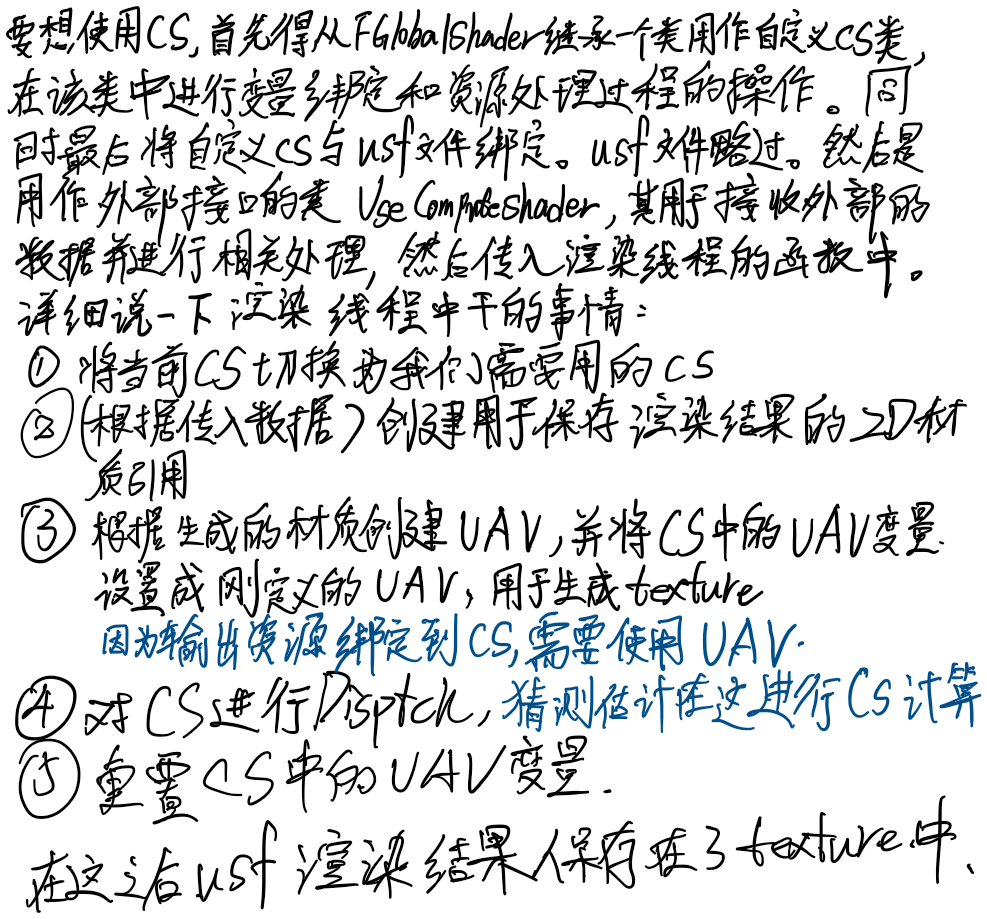 要想使用CS,首先得从FGlobalShader继承一个类用作自定义CS类,
在该类中进行变量绑定和资源处理过程的操作。同
时最后将自定义CS与usf文件绑定。usf文件略过。然后是
用作外部接口的类 UseComputeShader,其用于接收外部的
数据并进行相关处理,然后传入渲染线程的函数中。
详细说一下渲染线程中干的事情:
① 将当前CS切换为我们需要用的CS
② (根据传入数据)创建用于保存渲染结果的2D材
质引用
③ 根据生成的材质创建UAV,并将CS中的UAV变量
设置成刚定义的UAV,用于生成texture
因为输出资源绑定到CS,需要使用UAV.
④ 对CS进行Disptch,猜测估计在这进行CS计算
⑤ 重置CS中的UAV变量.
在这之后usf渲染结果保存在了texture中、